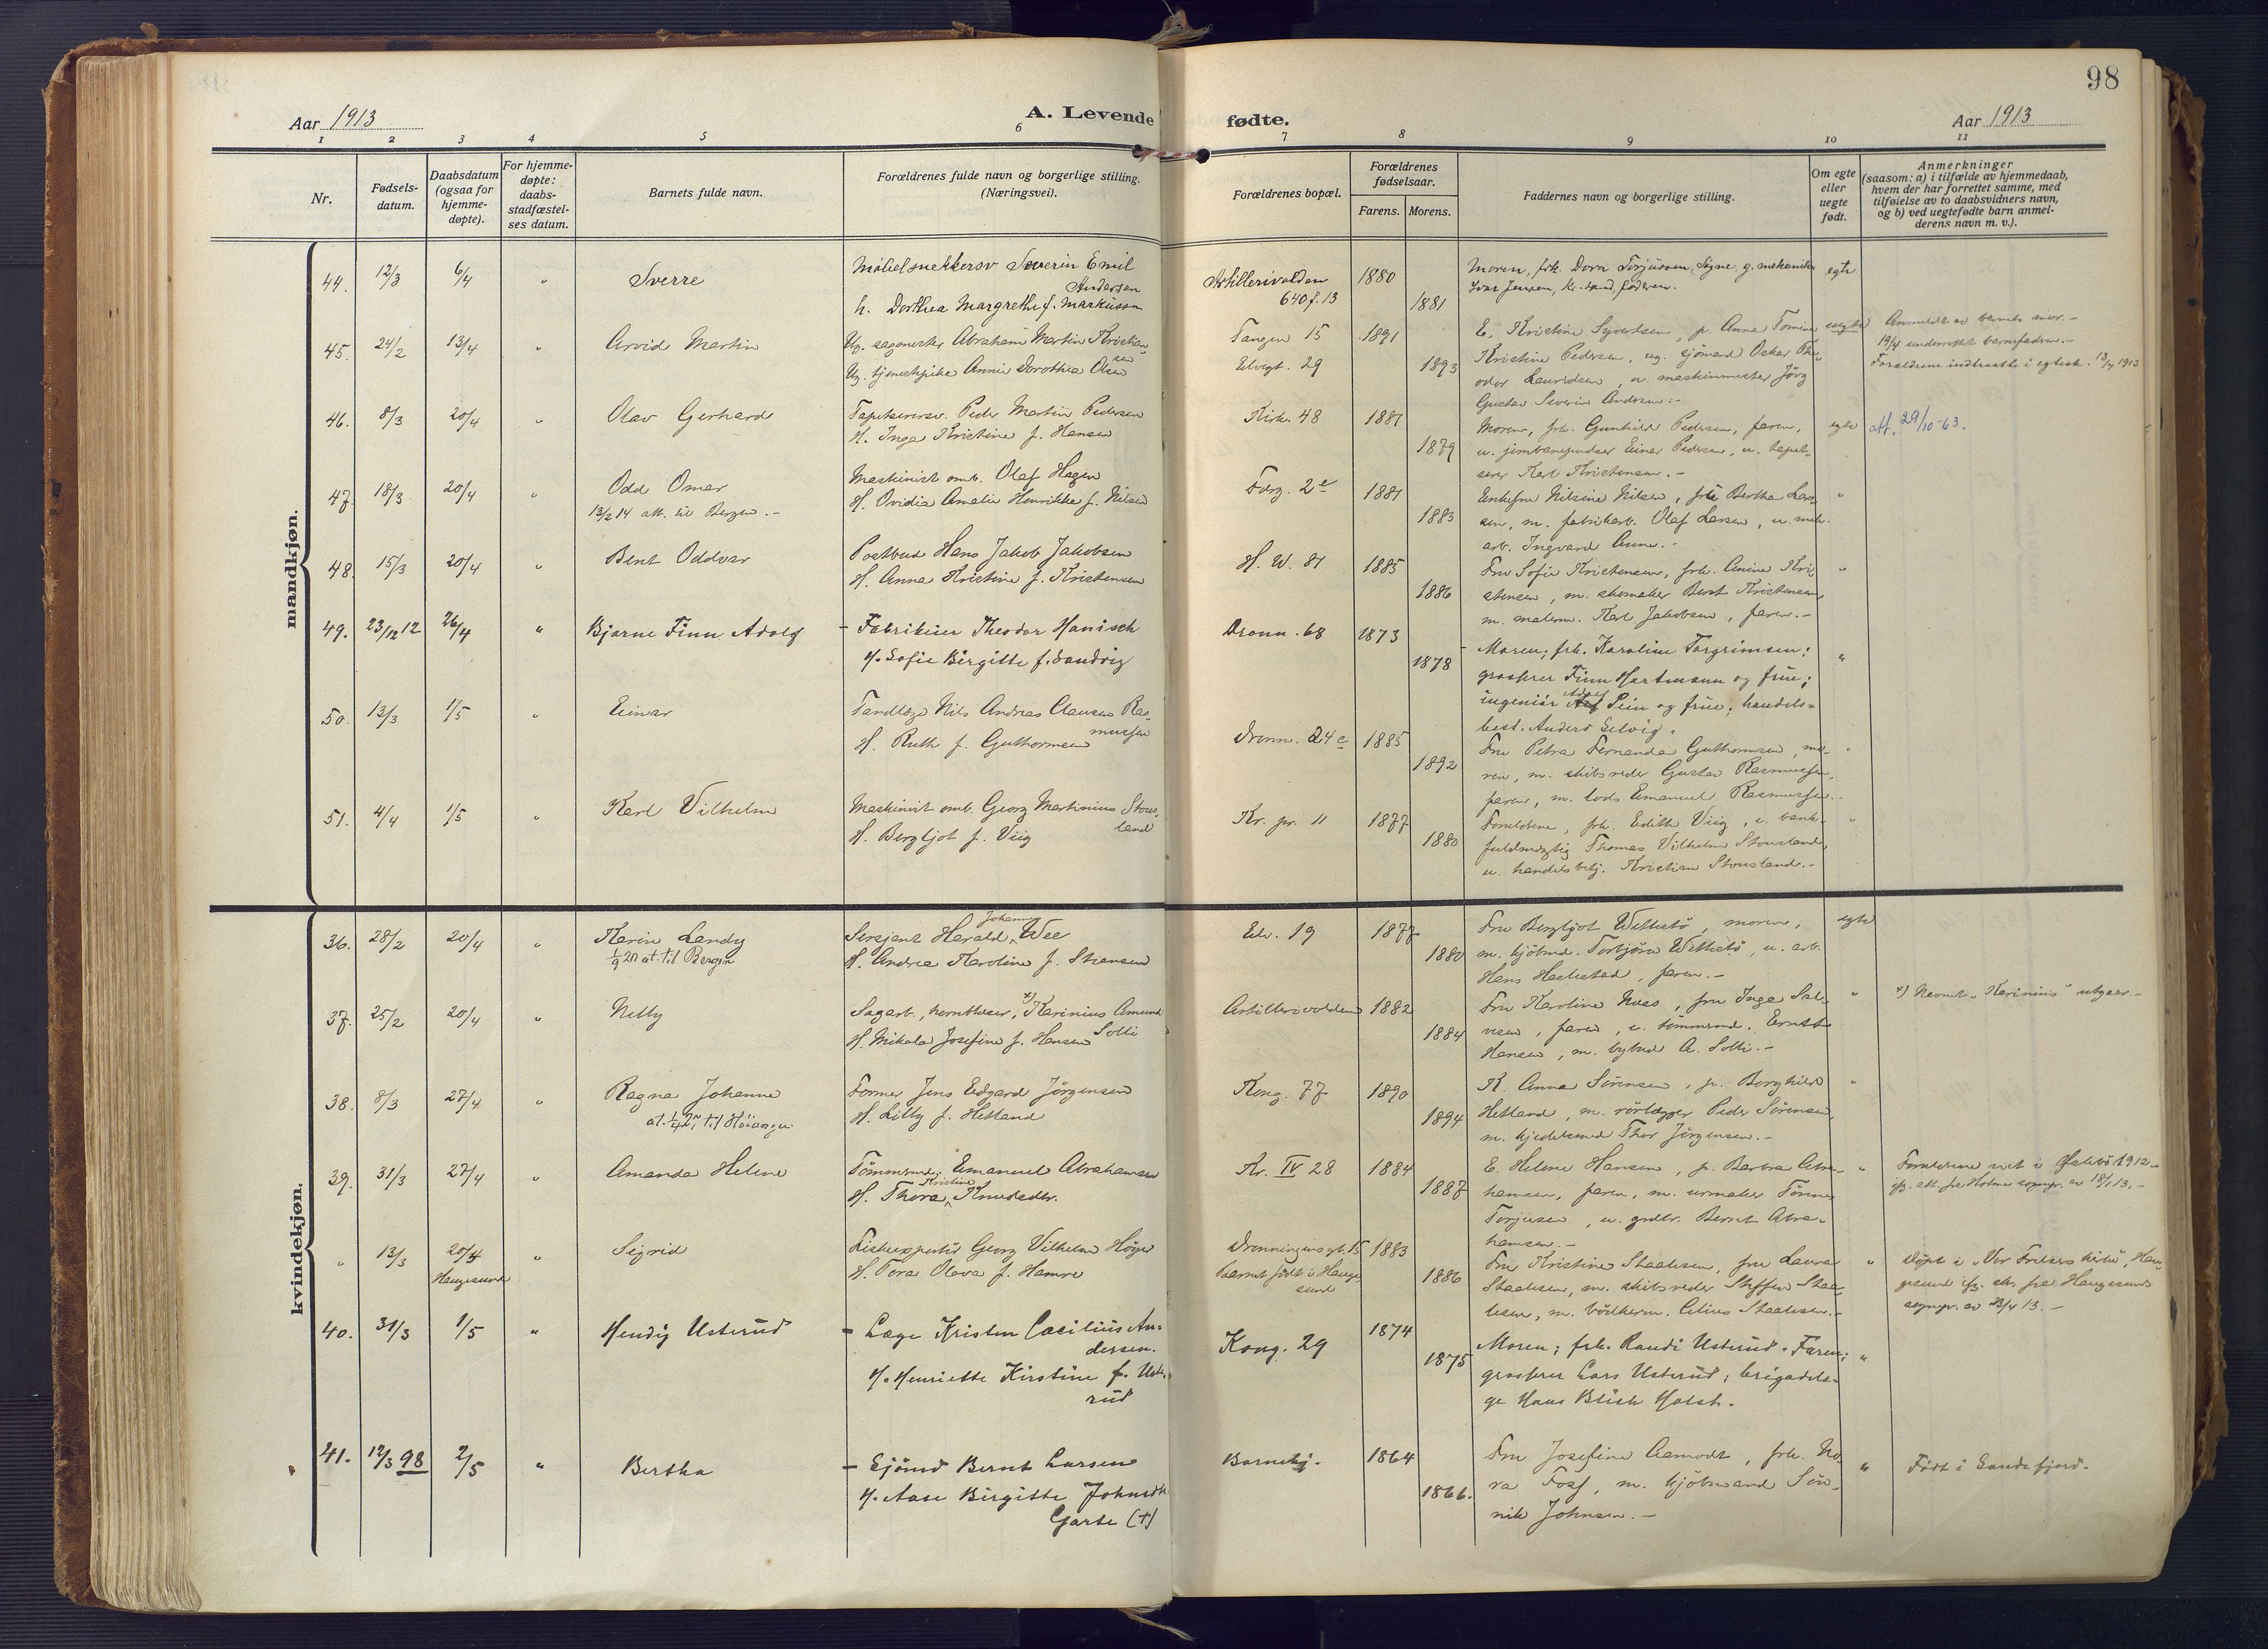 98
Aar 1913
A. Levende fødte.
Aar 1913
1 2 3 4 5 6 7 8 9 10 11
Nr.
Fødsels-
datum.
Daabsdatum
(ogsaa for
hjemme-
døpte).
For hjemme-
døpte:
daabs-
stadfæstel-
ses datum.
Barnets fulde navn.
Forældrenes fulde navn og borgerlige stilling.
(Næringsvei).
Forældrenes bopæl.
Forældrenes
fødselsaar.
Farens. Morens.
Faddernes navn og borgerlige stilling.
Om egte
eller
uegte
født.
Anmerkninger
(saasom: a) i tilfælde av hjemmedaab,
hvem der har forrettet samme, med
tilføielse av to daabsvidners navn,
og b) ved uegtefødte barn anmel-
derens navn m. v.).
mandkjøn.
44. 12/3 6/4 " Sverre
Møbelsnekkersv Severin Emil
Andersen
h. Dorthea Margrethe f. Markussen
Artillerivolden
640 f. 13
1880
1881
Moren, frk. Dora Torjussen, Signe, g. mekaniker
Ivar Jensen, Kr.sand, faderen.
egte
45. 24/2 13/4 " Arvid Martin
Ug. sagmester Abraham Martin Kristian-
sen
Ug. tjenestpike Anna Dorothea Olsen
Tangen 15
Elvegt. 29
1891
1893
E. Kristine Syvertsen, p. Anna Tomine
Kristine Pedersen, ug. sjømand Oskar The-
odor Lauridsen, u. maskinmester Jörg
Gustav Severin Andersen.-
uegte
Anmeldt av barnets mor.-
19/4 underrettet barnefaderen.-
Forældrene indtraadte i egtesk. 13/4 1913
46. 8/3 20/4 " Olav Gerhard
Tapetserersv. Peder Martin Pedersen
H. Inga Kristine f. Hansen
Kirk. 48
1881
1879
Moren, frk. Gunhild Pedersen, faren,
u. jernbanepudser Einar Pedersen, u. tapet-
serer Karl Kristensen.-
egte
att. 29/10-63.
47. 18/3 20/4 " Odd Omar
13/2 14 att. til Bergen.-
Maskinist omb. Olaf Hagen
H. Ovidia Amalie Henrikke f. Nilsen
Færg. 2e
1881
1883
Enkefru Nilsine Nilsen, frk Bertha Lar-
sen, m. fabrikarb. Olaf Larsen, u. mek.
arb. Ingvard Aune.-
"
48. 15/3 20/4 " Bent Oddvar
Postbud Hans Jakob Jakobsen
H. Anna Kristine f. Kristensen
H. W. 81
1885
1886
Fru Sofie Kristensen, frk. Amine Kri-
stensen, m. skomaker Berot Kristensen,
m. malerm. Karl Jakobsen, faren.-
"
49. 23/12 12 26/4 " Bjarne Finn Adolf
- Fabrikeier Theodor Hanisch
H. Sofie Birgitte f. Sandvig
Dronn. 68
1873
1878
Moren; frk. Karoline Torgrimsen;
grosserer Finn Hartmann og frue;
ingeniør Adolf Pein og frue; handels-
best. Anders Selvig.
"
50. 13/3 1/5 " Einar
Tandlæge Nils Andreas Clausen Ras-
mussen
H. Ruth f. Guthormsen
Dronn. 24c
1885
1892
Fru Petra Fernanda Guthormsen, mo-
ren, m. skibsreder Gustav Rasmussen,
faren, m. lods Emanuel Rasmussen.-
"
51. 4/4 1/5 " Karl Vilhelm
Maskinist omb. Georg Martinius Stous-
land
H. Bergljot f. Viig
Kr. pr. 11
1877
1880
Forældrene, frk. Edith Viig, u. bank-
fuldmægtig Thomas Vilhelm Stousland,
u. handelsbetj. Kristian Stousland.-
"
kvindekjøn.
36. 28/2 20/4 " Karin Landy
1/9 20 at. til Bergen
Johannes
Sersjant Harald Wee
H. Andrea Karoline f. Stiansen
Elv. 19
1877
1880
Fru Bergljot Wettestö, moren,
m. kjöbmd. Torbjörn Wettestö, u. arb.
Hans Heckestad, faren.-
egte
37. 25/2 20/4 " Nelly
Sagarb., hornblæser, x) Karinius Amund
Solli
H. Mikala Josefine f. Hansen
Artillerivolden
1882
1884
Fru Karoline Naes, fru Inga Sal-
vesen, faren, u. tömmermd. Ernst
Hansen, m. bybud A. Solli.-
"
x) Navnet "Karinius" utgaar.-
38. 8/3 27/4 " Ragna Johanne
at. 1/4 21 til Höianger
Former Jens Edgard Jörgensen
H. Lilly f. Hetland
Kong. 77
1890
1894
K. Anna Sörensen, p. Borghild
Hetland, m. rörlægger Peder Sörensen,
m. kjedelsmed Thor Jörgensen.-
"
39. 31/3 27/4 " Amanda Helene
Tömmermd. Emanuel Abrahamsen
Kristine
H. Thora Knudsdtr.
Kr. IV 28
1884
1887
E. Helene Hansen, p. Barbra Abra-
hamsen, faren, m. urmaker Tönnes
Torjusen, u. grdbr. Bernt Abra-
hamsen.-
"
Forældrene viet i 1912
ifg. att. fra Holme sogepr. av 18/1 13.-
" 13/3 20/4 " Sigrid
Haugesund
Fiskeexportör Georg Vilhelm Höyer
H. Tora Olava f. Hamre
Dronningensgt. 15
Barnet født i Hauge-
sund
1883
1886
Fru Kristine Staalesen, fru Laura
Staalesen, m. skibsreder Steffen Staa-
lesen, m. bödkerm. Elius Staalesen.-
"
Døpt i "Vor Frelsers kirke", Hau-
gesund ifg. att. fra Haugesunds
sogepr. av 23/4 13.-
40. 31/3 1/5 " Hendig Usterud
- Læge Kristen Cæcilius An-
dersen.
H. Henriette Kirstine f. Uste-
rud
Kong. 29
1874
1875
Moren; frk. Randi Usterud. Faren;
grosserer Lars Usterud; brigadelæ-
ge Hans Blich Holst.
"
41. 12/3 98 2/5 " Bertha
- Sjömd Bernt Larsen
H. Aase Birgitte Johnsdt.
Garte (†)
Barnehj.
1864
1866.
Fru Josefine Aamodt, frk. No-
ra Foss, m. kjöbmand Sön-
nik Johnsen.-
"
Født i Sandefjord.